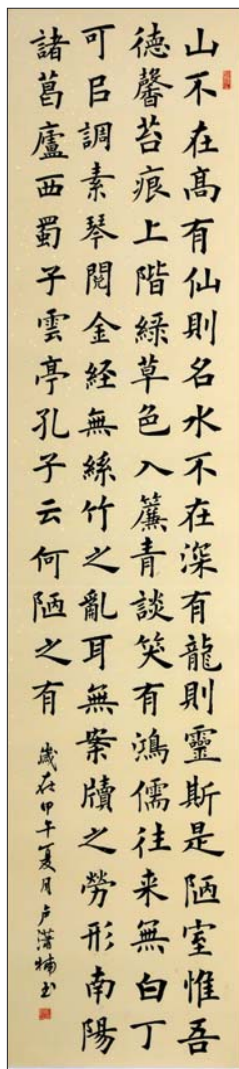 山不在髙有仙則名水不在深有龍則靈斯是陋室惟吾
德馨苔痕上階綠草色入簾青談笑有鴻儒往来無白丁
可㠯調素琴閱金経無絲竹之亂耳無案牘之勞形南陽
諸葛廬西蜀子雲亭孔子云何陋之有
歲在甲午夏月卢楠书